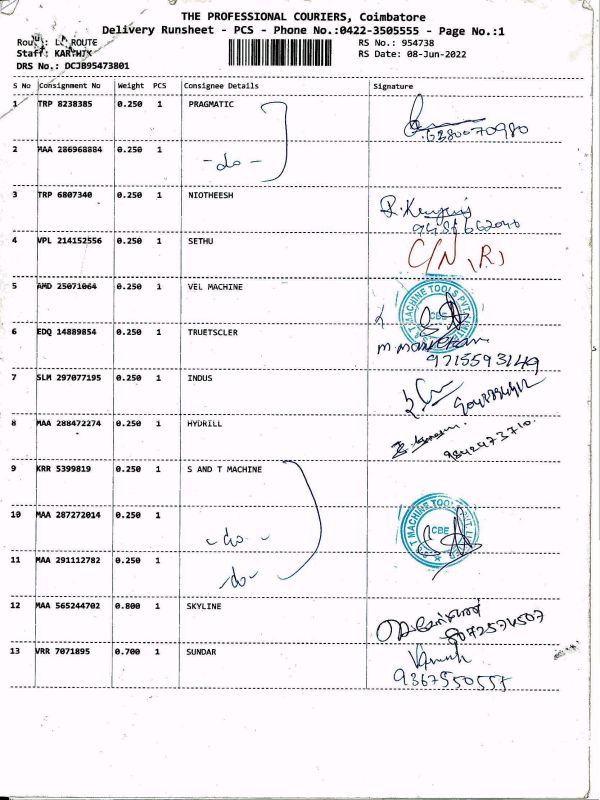 THE PROFESSIONAL COURIERS, Coimbatore
Delivery Runsheet - PCS - Phone No.:0422-3505555 - Page No.:1
ROUTE RS No.: 954738
Staff: KARTHIK RS Date: 08-Jun-2022
DRS No.: DCJ895473801
S No Consignment No Weight PCS Consignee Details Signature
1 TRP 8238385 0.250 1 PRAGMATIC
6380070980
2 MAA 286968884 0.250 1
- do -
3 TRP 6807340 0.250 1 NIOTHEESH
4 VPL 214152556 0.250 1 SETHU C/N (R)
5 AMD 25071064 0.250 1 VEL MACHINE
S & T MACHINE TOOLS PVT. LIMITED CBE
6 EDQ 14889854 0.250 1 TRUETSCLER
9715593149
7 SLM 297077195 0.250 1 INDUS
8 MAA 288472274 0.250 1 HYDRILL
9842973710
9 KRR 5399819 0.250 1 S AND T MACHINE
10 MAA 287272014 0.250 1
- do -
MACHINE TOOLS PVT. CBE
11 MAA 291112782 0.250 1
- do -
12 MAA 565244702 0.800 1 SKYLINE
8072574507
13 VRR 7071895 0.700 1 SUNDAR
9367550557